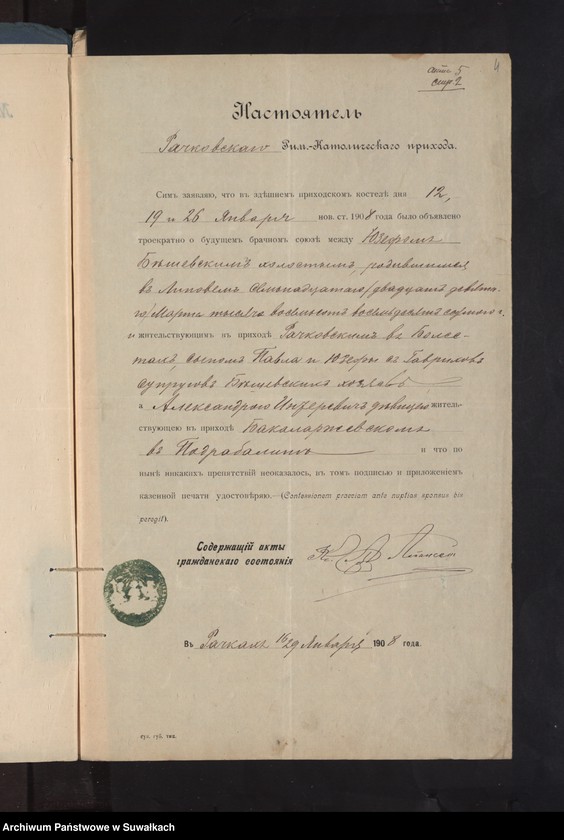 актъ 5
стр. 2
4
Настоятель
Рачковскаго Рим.-Католическаго прихода.
Симъ заявляю, что въ здѣшнемъ приходскомъ костелѣ дня 12,
19 и 26 Января нов. ст. 1908 года было объявлено
троекратно о будущемъ брачномъ союзѣ между Юзефомъ
Бышевскимъ холостымъ, родившимся
въ Липовемъ семьнадцатаго/двадцать девята-
го/Марта тысяча восемьсотъ восемьдесятъ седьмого г.
жительствующимъ въ приходѣ Рачковскимъ въ
сыномъ Павла и Юзефы съ Гавриловъ
супруговъ Бышевскихъ
а Александрою Инхеревичъ дѣвицею житель-
ствующею въ приходѣ Бакаларжевскомъ
въ Подрабалинѣ и что по
нынѣ никакихъ препятствій неоказалось, въ томъ подписью и приложеніемъ
казенной печати удостовѣряю.—(Confessionem praeciam ante nuptias sponsus hic
peregit).
Содержащій акты
гражданскаго состоянія
Въ Рачкахъ 16/29 Января 1908 года.
сув. губ. тип.
Archiwum Państwowe w Suwałkach